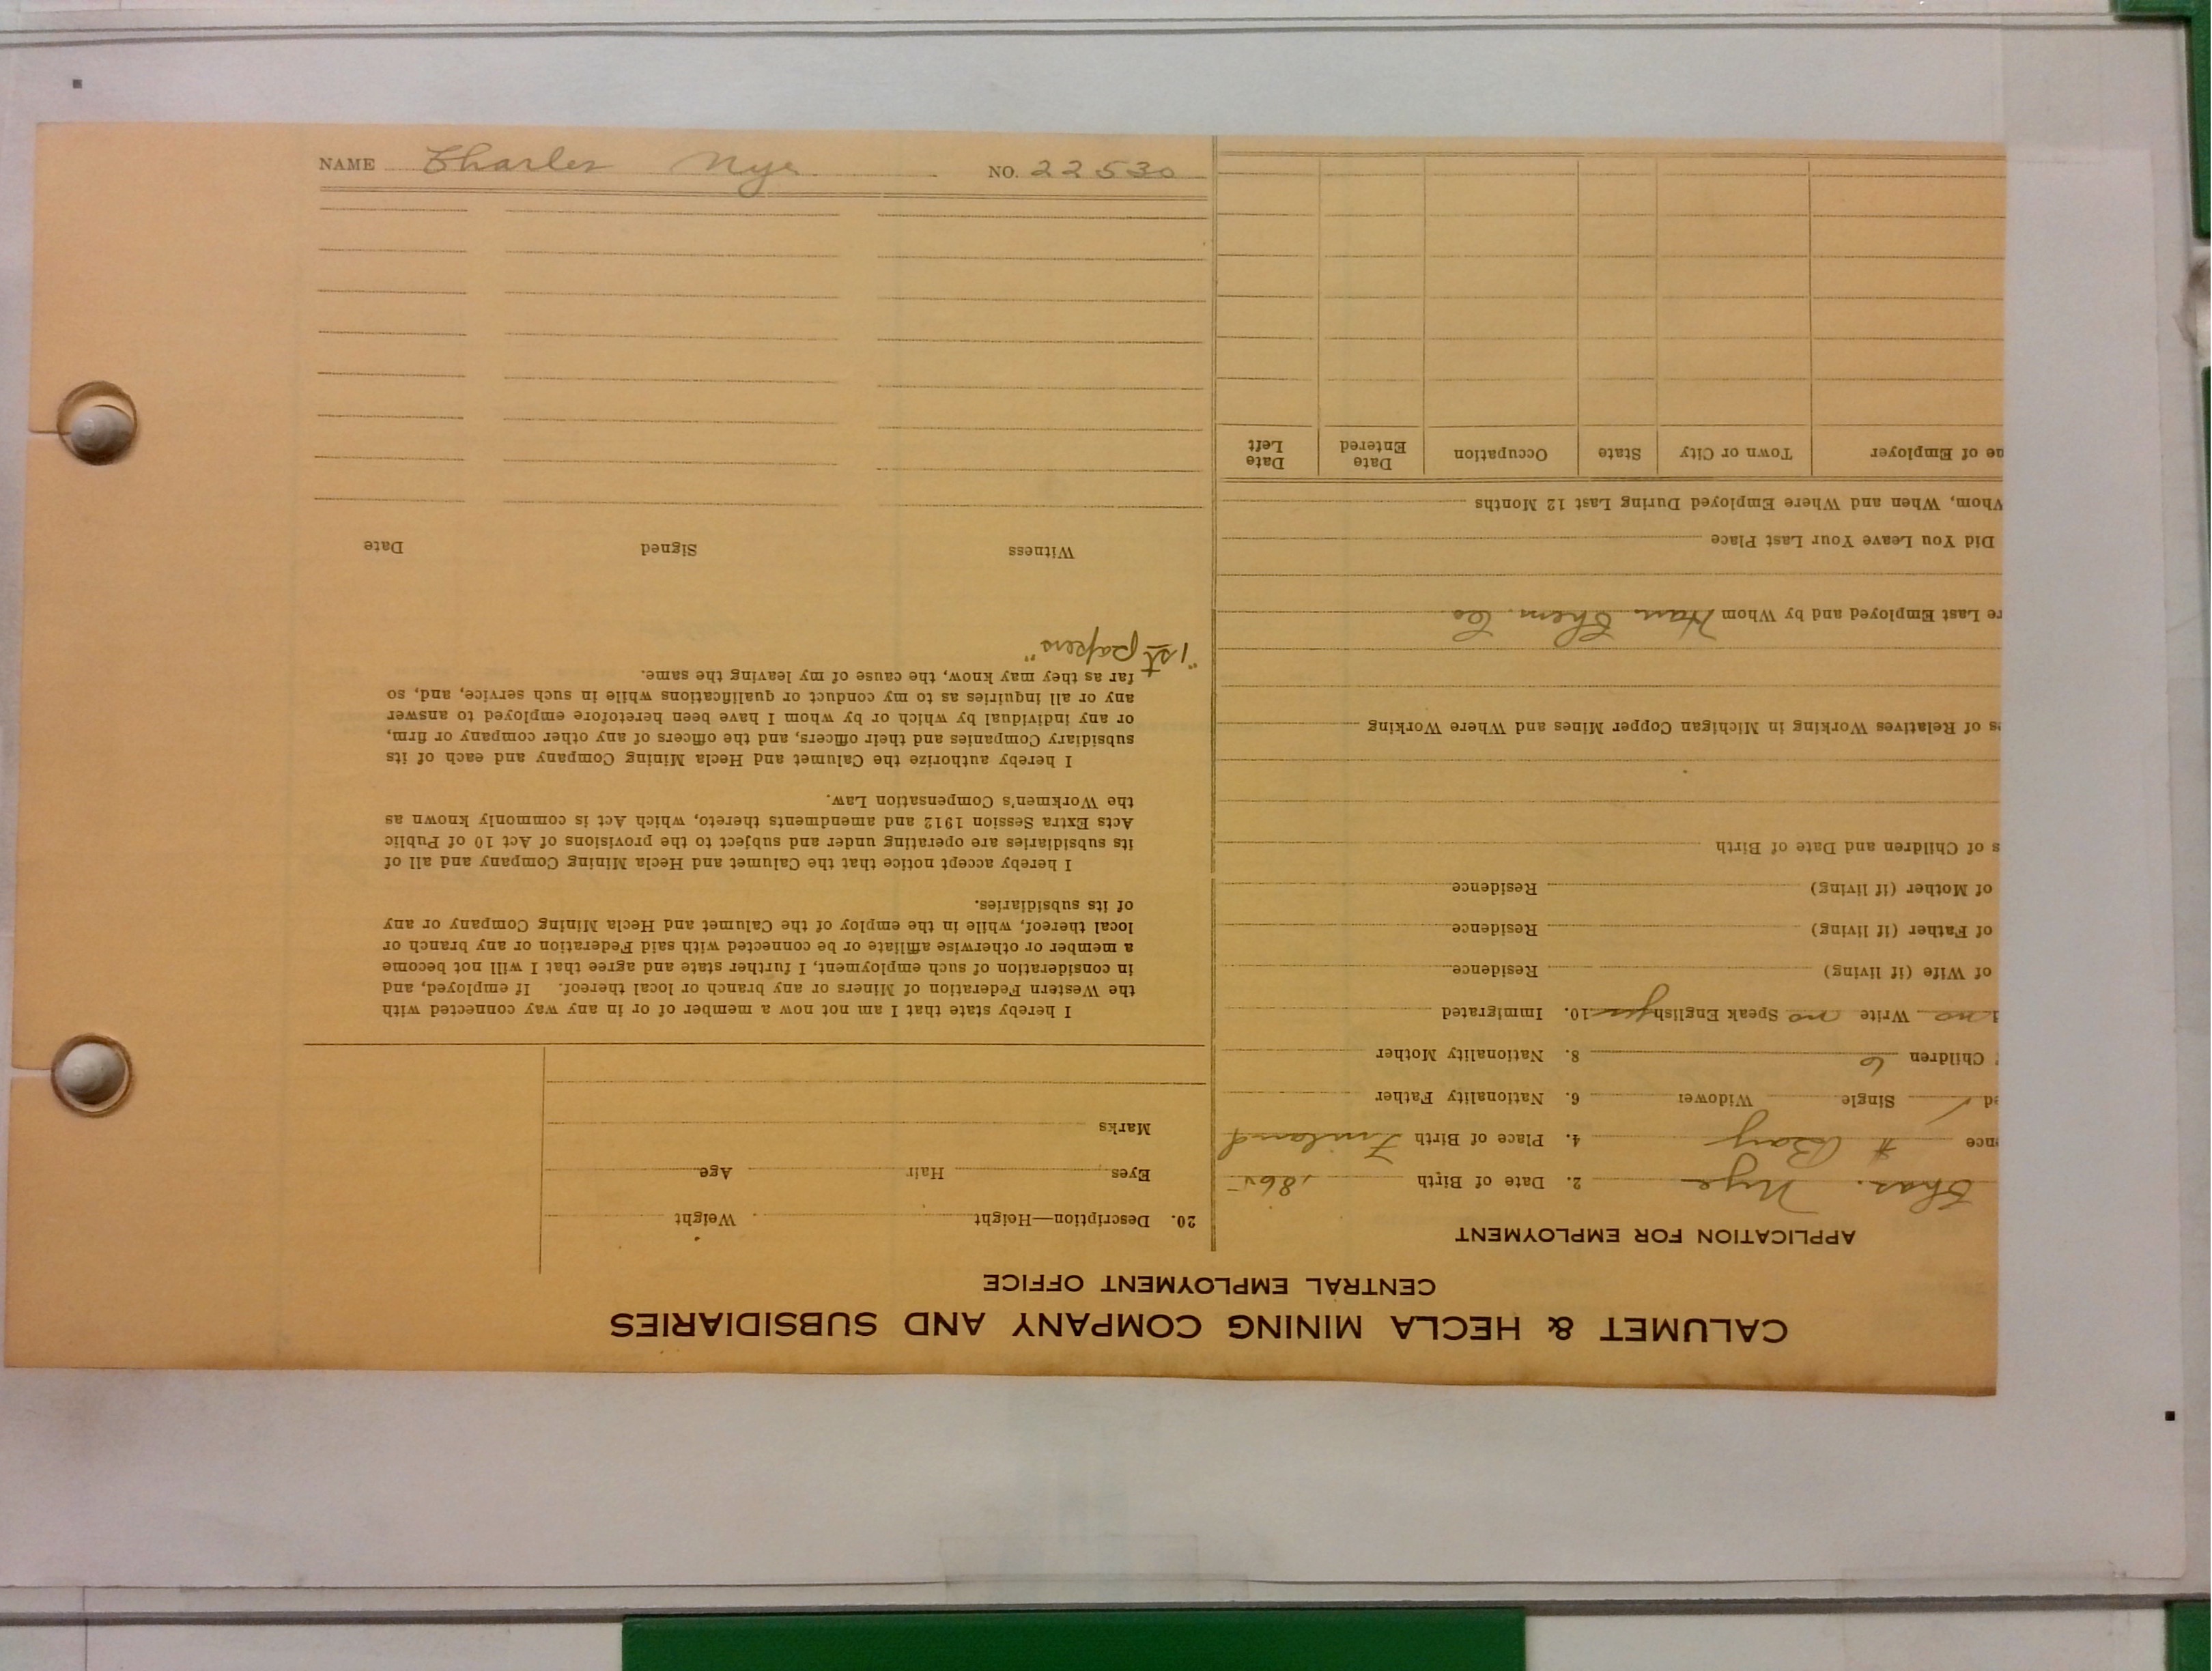 CALUMET & HECLA MINING COMPANY AND SUBSIDIARIES
CENTRAL EMPLOYMENT OFFICE
APPLICATION FOR EMPLOYMENT
Chas. Nye 2. Date of Birth 1865
nce # Bay 4. Place of Birth Finland
ed / Single Widower 6. Nationality Father
Children 6 8. Nationality Mother
d no Write no Speak English yes 10. Immigrated
of Wife (if living) Residence
of Father (if living) Residence
of Mother (if living) Residence
s of Children and Date of Birth
s of Relatives Working in Michigan Copper Mines and Where Working
re Last Employed and by Whom Han Chem. Co
Did You Leave Your Last Place
Whom, When and Where Employed During Last 12 Months
ne of Employer Town or City State Occupation Date Entered Date Left
20. Description—Height Weight
Eyes Hair Age
Marks
I hereby state that I am not now a member of or in any way connected with
the Western Federation of Miners or any branch or local thereof. If employed, and
in consideration of such employment, I further state and agree that I will not become
a member or otherwise affiliate or be connected with said Federation or any branch or
local thereof, while in the employ of the Calumet and Hecla Mining Company or any
of its subsidiaries.
I hereby accept notice that the Calumet and Hecla Mining Company and all of
its subsidiaries are operating under and subject to the provisions of Act 10 of Public
Acts Extra Session 1912 and amendments thereto, which Act is commonly known as
the Workmen's Compensation Law.
I hereby authorize the Calumet and Hecla Mining Company and each of its
subsidiary Companies and their officers, and the officers of any other company or firm,
or any individual by which or by whom I have been heretofore employed to answer
any or all inquiries as to my conduct or qualifications while in such service, and, so
far as they may know, the cause of my leaving the same.
"1st papers"
Witness Signed Date
NAME Charles Nye NO. 22530